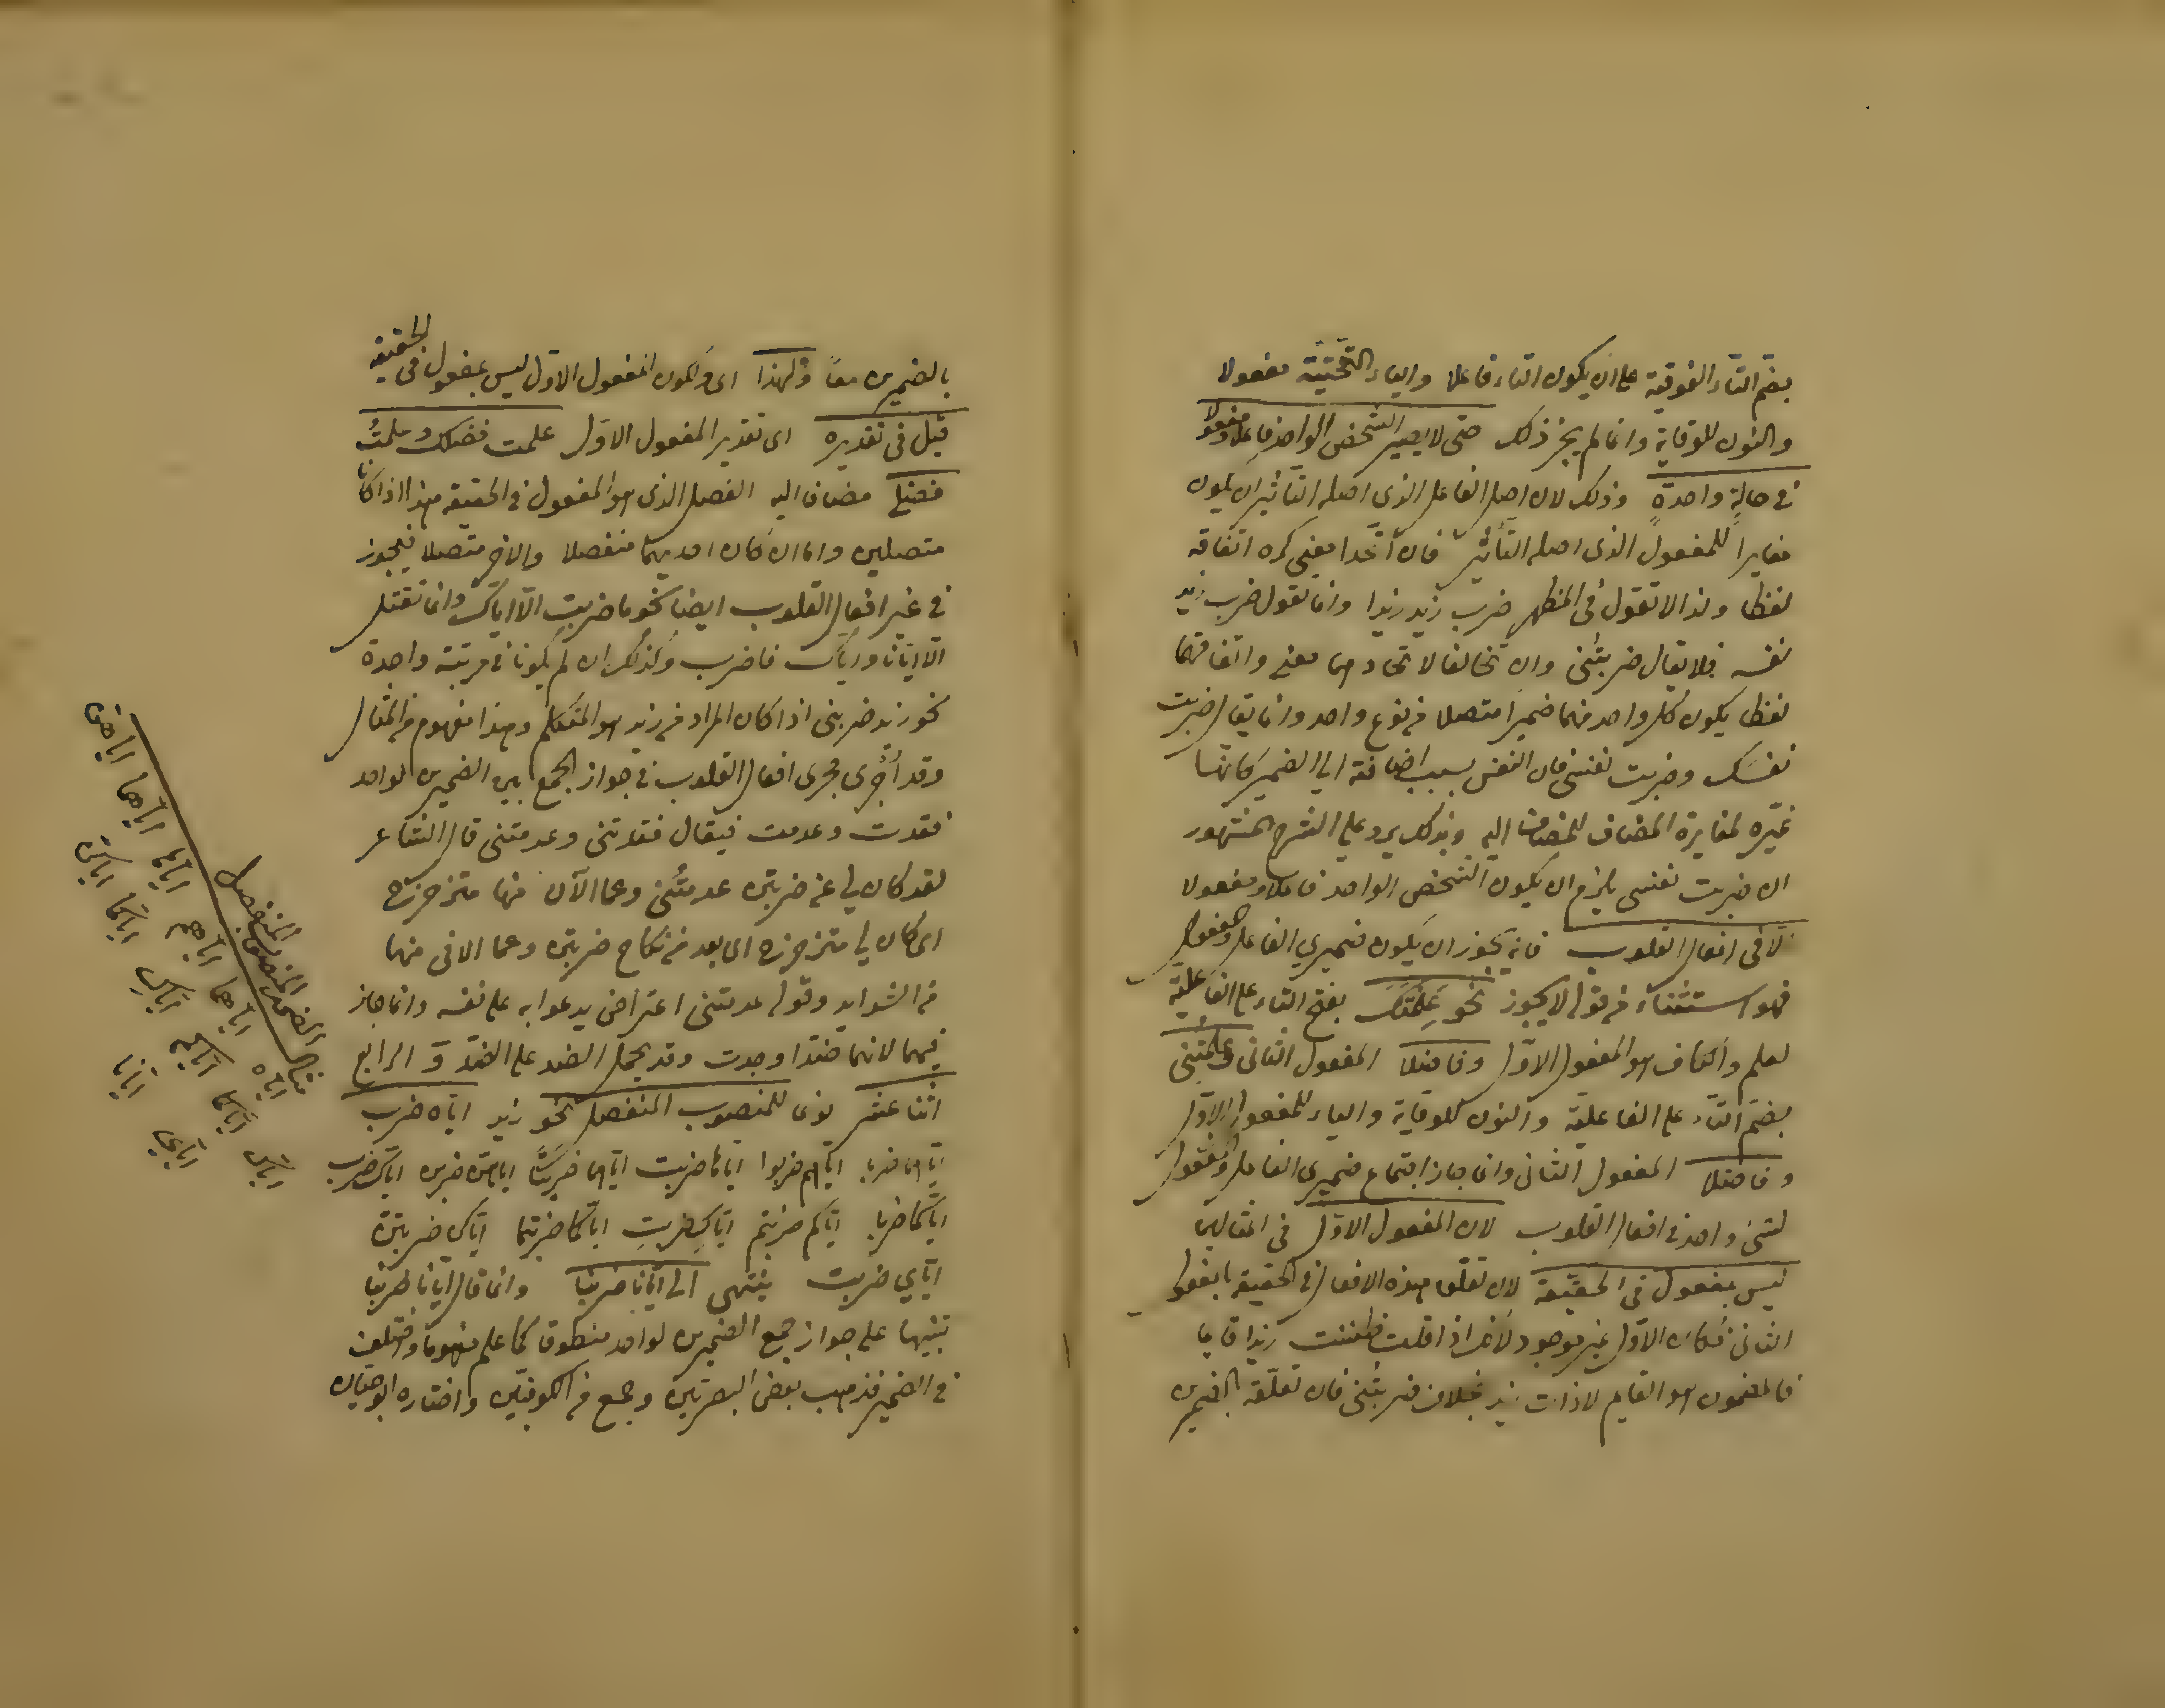 بضم التاء الفوقية على ان يكون التاء فاعلا والياء التحتية مفعولا
والنون للوقاية وانما لم يجز ذلك حتى لا يصير الشخص الواحد فاعلا ومفعولا
في حالةٍ واحدةٍ وذلك لان اصل الفاعل الذى اصله التأثير ان يكون
مغايراً للمفعول الذى اصله التأثير فان اتّحدا معنى كره اتفاقه
لفظا ولذا لا تقول فى المظهر ضرب زيد زيدا وانما تقول ضرب زيد
نفسه فلا يقال ضربتُنى وان تخالفا لاتحادهما معنى واتفاقهما
لفظا يكون كل واحد منهما ضميراً متصلا من نوع واحد وانما يقال ضربت
نفسَك وضربت نفسى فان النفس بسبب اضافته الى الضمير كانها
غيره لمغايرة المضاف للمضاف اليه وبذلك يرد على الشرح المشهور
ان ضربت نفسى يلزم ان يكون الشخص الواحد فاعلا ومفعولا
الّا فى افعال القلوب فانه يجوز ان يكون ضميري الفاعل والمفعول
فهو استثناء من قوله لا يجوز نحو عَلِمْتَكَ بفتح التاء على الفاعليّة
لعلم والكاف هو المفعول الاوّل وفاضلا المفعول الثانى وعلمتُنى
بضم التّاء على الفاعليّة والنون للوقاية والياء للمفعول الاوّل
وفاضلا المفعول الثانى وانما جاز اجتماع ضميرى الفاعل والمفعول
لشئ واحد فى افعال القلوب لان المفعول الاوّل فى المثالين
ليس بمفعول فى الحقيقة لان تعلّق هذه الافعال فى الحقيقة بالمفعول
الثانى فكان الاوّل غير موجود لانك اذا قلت ظننت زيدا قايما
فالمظنون هو القايم لا ذات زيد بخلاف ضربتُنى فان تعلّقه بالضميرين
بالضميرين معاً ولهذا اى ولكون المفعول الاوّل ليس بمفعول فى الحقيقة
قيل فى تقديره اى تقدير المفعول الاوّل علمت فضلك وعلمتُ
فضلى مضاف اليه الفضل الذى هو المفعول فى الحقيقة هذا اذا كانا
متصلين واما ان كان احديهما منفصلا والاخر متصلا فيجوز
فى غير افعال القلوب ايضا نحو ما ضربت الّا اياك وانما نقتل
الا ايّانا واياك فاضرب وكذلك ان لم يكونا فى مرتبة واحدة
نحو زيد ضربنى اذا كان المراد من زيد هو المتكلم وهذا مفهوم من المثال
وقد أُجْرى مجرى افعال القلوب فى جواز الجمع بين الضميرين لواحد
فقدت وعدمت فيقال فقدتنى وعدمتنى قال الشاعر
لقد كان لى عن ضرتين عدمتُنى وعما الآن منها متزحزح
اى كان لى متزحزح اى بعد من نكاح ضرتين وعما الاقى منهما
من الشدايد وقوله عدمتنى اعتراض يدعوا به على نفسه وانما جاز
فيهما لانهما ضدّا وجدت وقد يحمل الضد على الضدّ وَ الرابع
اثنا عشر نوعا للمنصوب المنفصل نحو زيد ايّاه ضرب
ايّاهما ضربا ايّاهم ضربوا اياها ضربت ايّاهما ضربتا اياهن ضربن اياك ضرب
ايّاكما ضربا ايّاكم ضربتم ايّاكِ ضربتِ ايّاكما ضربتما ايّاكن ضربتن
ايّاي ضربت ينتهى الى ايّانا ضربنا وانما قال ايّانا ضربنا
تنبيها على جواز جمع الضميرين لواحد منطوقا كما علم مفهوما واختلف
فى الضمير فذهب بعض البصريّين وجمع من الكوفيّين واختاره ابو حيان
مثال الضمير المنصوب المنفصل
اياه اياهما اياهم اياها اياهما اياهن
اياك اياكما اياكم اياكِ اياكما اياكن
اياي ايانا